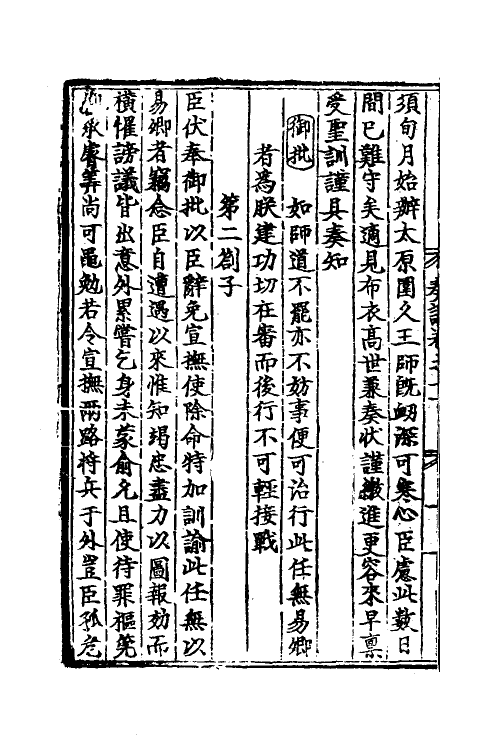 須旬月始辦太原圍久王師旣衂深可寒心臣慮此數日
間已難守矣適見布衣髙世兼奏狀謹繳進更容來早禀
受聖訓謹具奏知
御批　如師道不罷亦不妨事便可治行此任無易卿
者爲朕建功切在審而後行不可輕接戰
第二劄子
臣伏奉御批以臣辭免宣撫使除命特加訓諭此任無以
易卿者竊念臣自遭遇以來惟知竭忠盡力以圖報効而
橫罹謗議皆出意外累嘗乞身未蒙俞允且使待罪樞筦
承睿筭尚可黽勉若令宣撫兩路將兵于外豈臣孤危